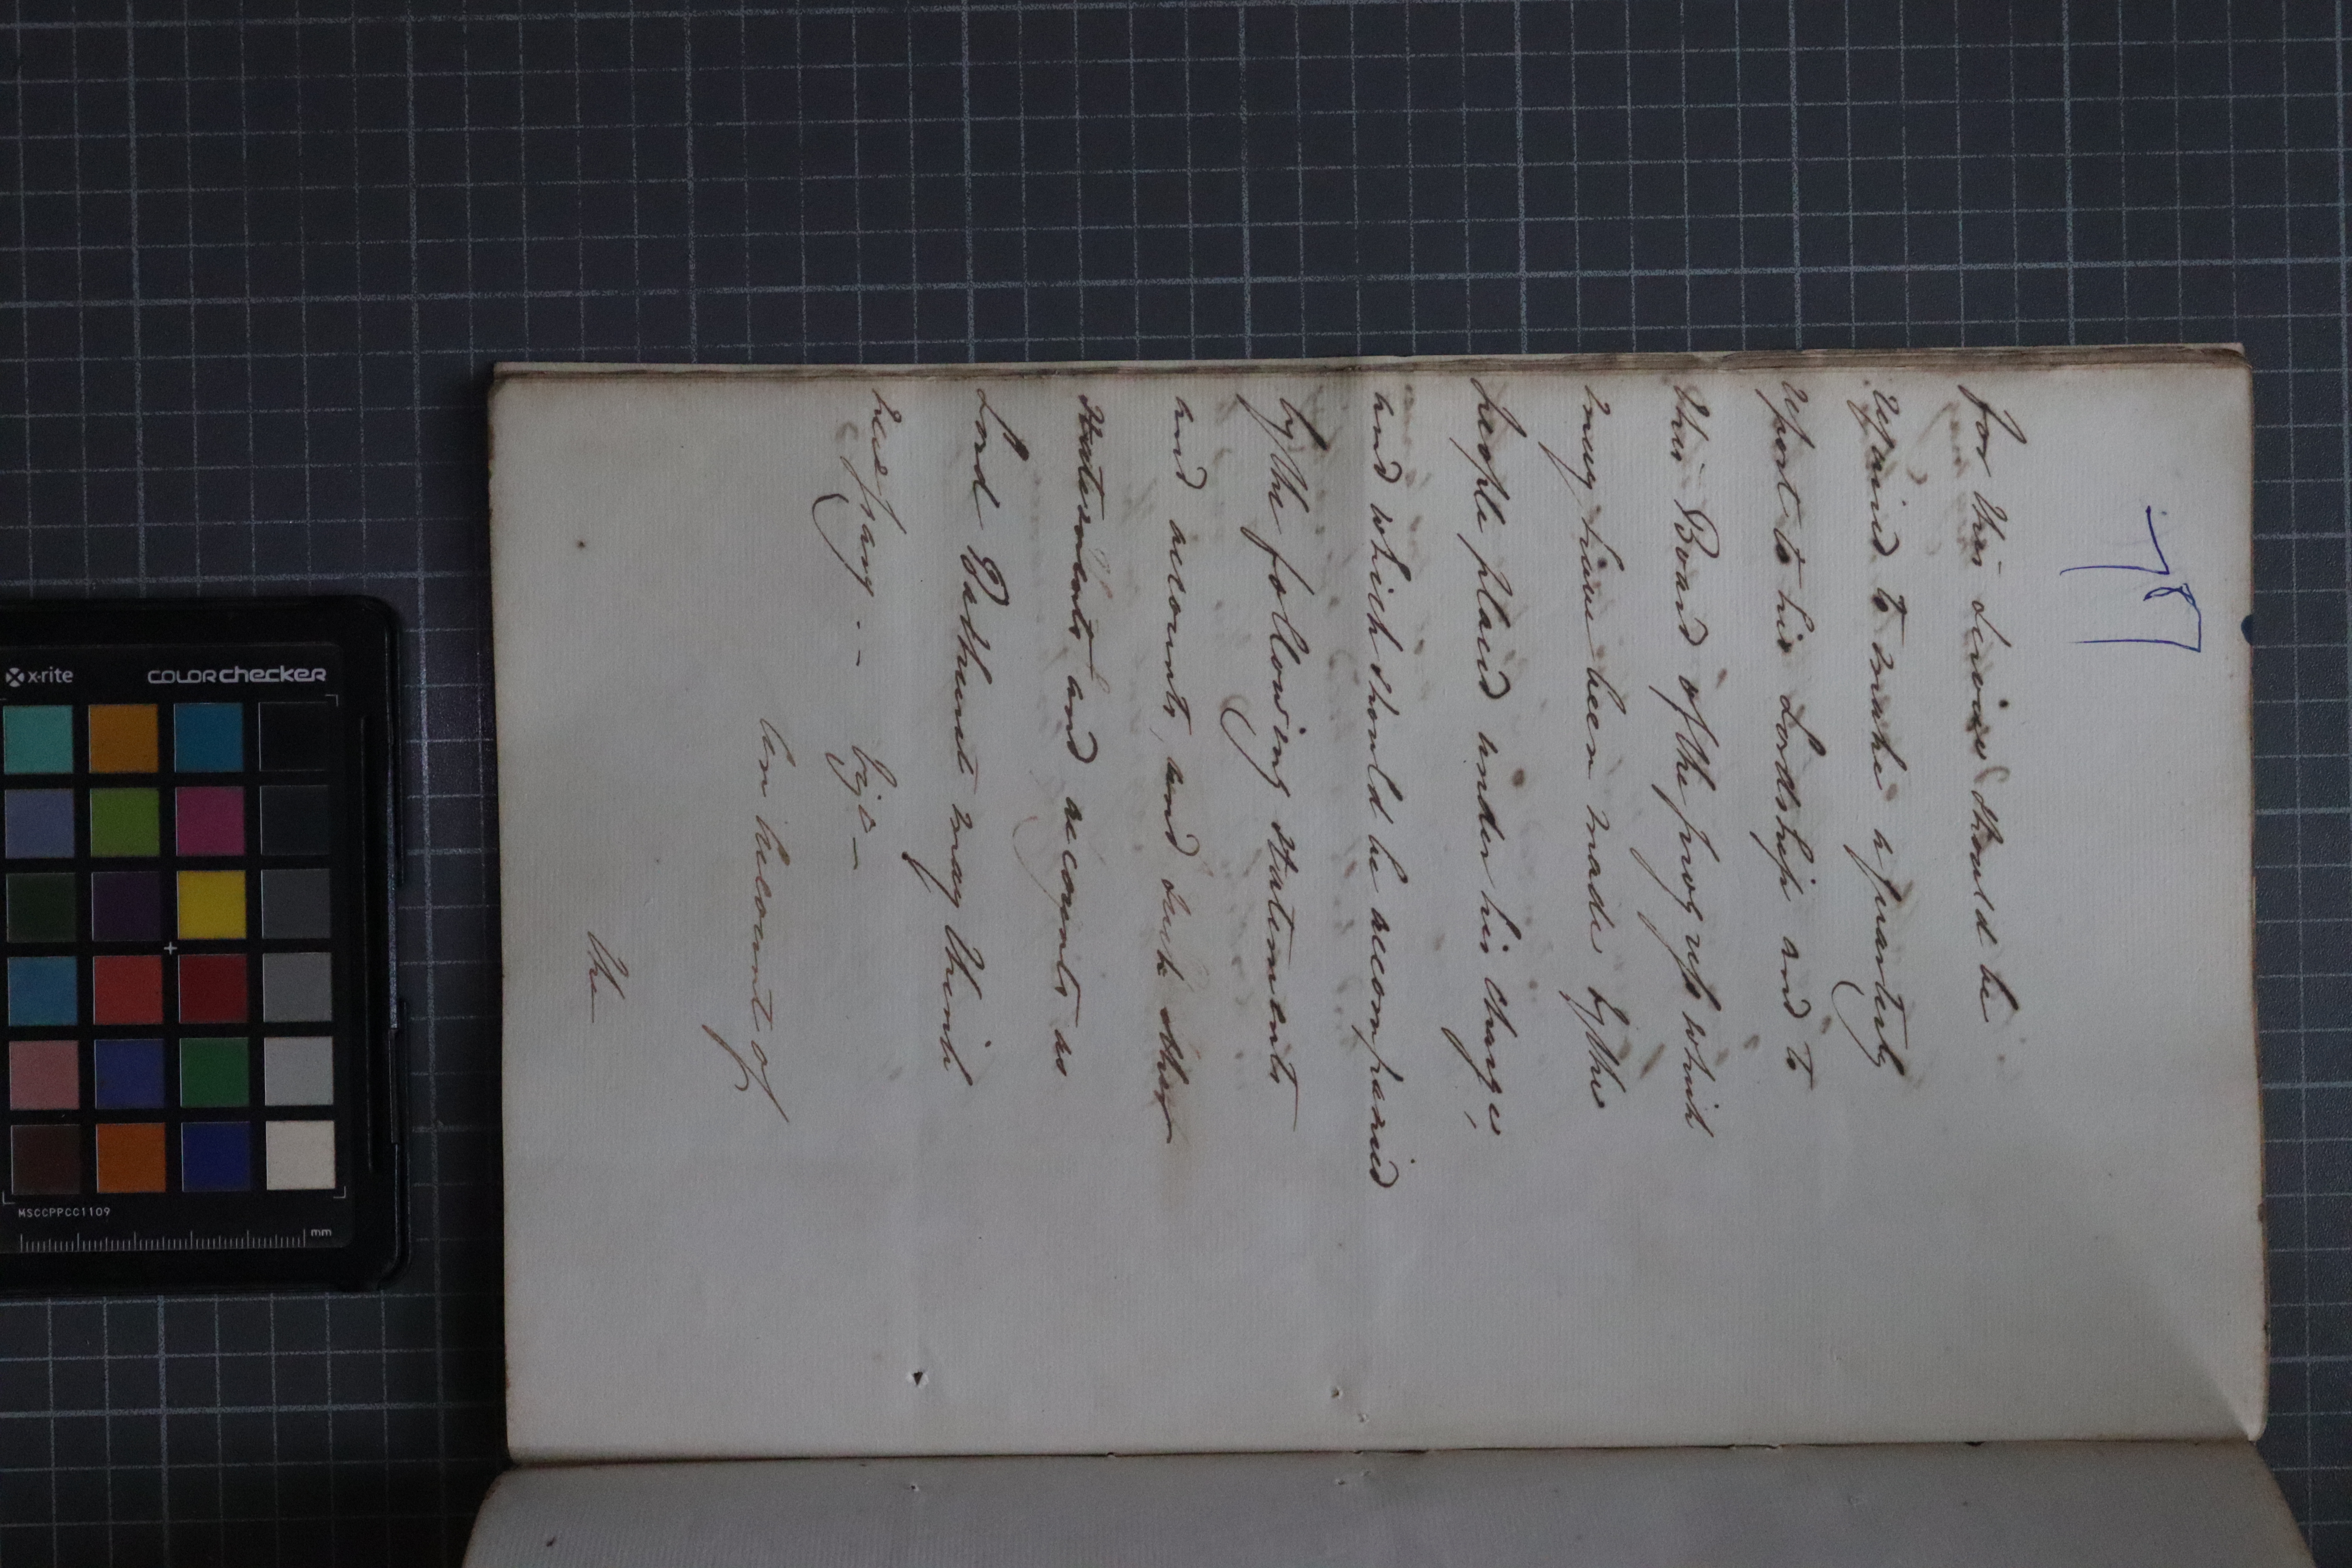 78
for this service should be
required to make a quarterly
report to his Lordship and to
this Board of the progress which
may have been made by the
people placed under his charge,
and which should be accompanied
by the following statements
and accounts, and such other
statements and accounts as
Lord Bathurst may think
necessary. -
Vizt -
An Account of
the
x-rite
COLORchecker
MSCCPPCC1109
mm